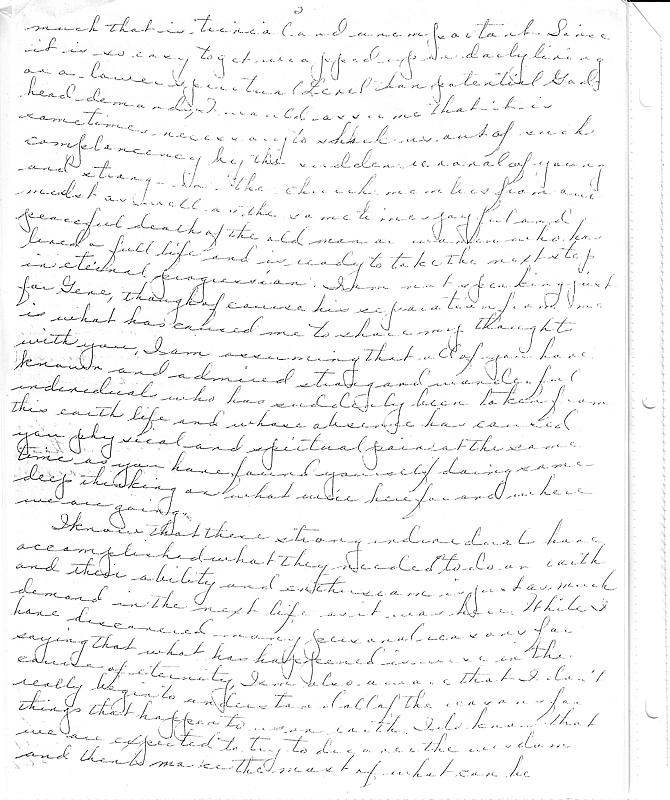 2
much that is trivial and unimportant. Since
it is so easy to get wrapped up in daily living
on a lower spiritual level than potential God
head demands, I would assume that it is
sometimes necessary to shock us out of such
complacency by the sudden removal of young
and strong in the church members from our
midst as well as the sometimes joyful and
peaceful death of the old man or woman who has
lived a full life and is ready to take the next step
in eternal progression. I am not speaking just
for Gene, though of course his separation from me
is what has caused me to share my thoughts
with you, I am assuming that all of you have
known and admired strong and wonderful
individual who has suddenly been taken from
this earth life and whose absence has caused
you physical and spiritual pain at the same
time as you have found yourself doing some
deep thinking on what we're here for and where
we are going.
I know that these strong individuals have
accomplished what they needed to do on earth
and their ability and enthusiasm is just as much
demand in the next life as it was here. While I
have discovered many personal reasons for
saying that what has happened is wise in the
course of eternity, I am also aware that I don't
really begin to understand all of the reasons for
things that happen to us on earth. I do know that
we are expected to try to discover the wisdom
and then to make the most of what can be